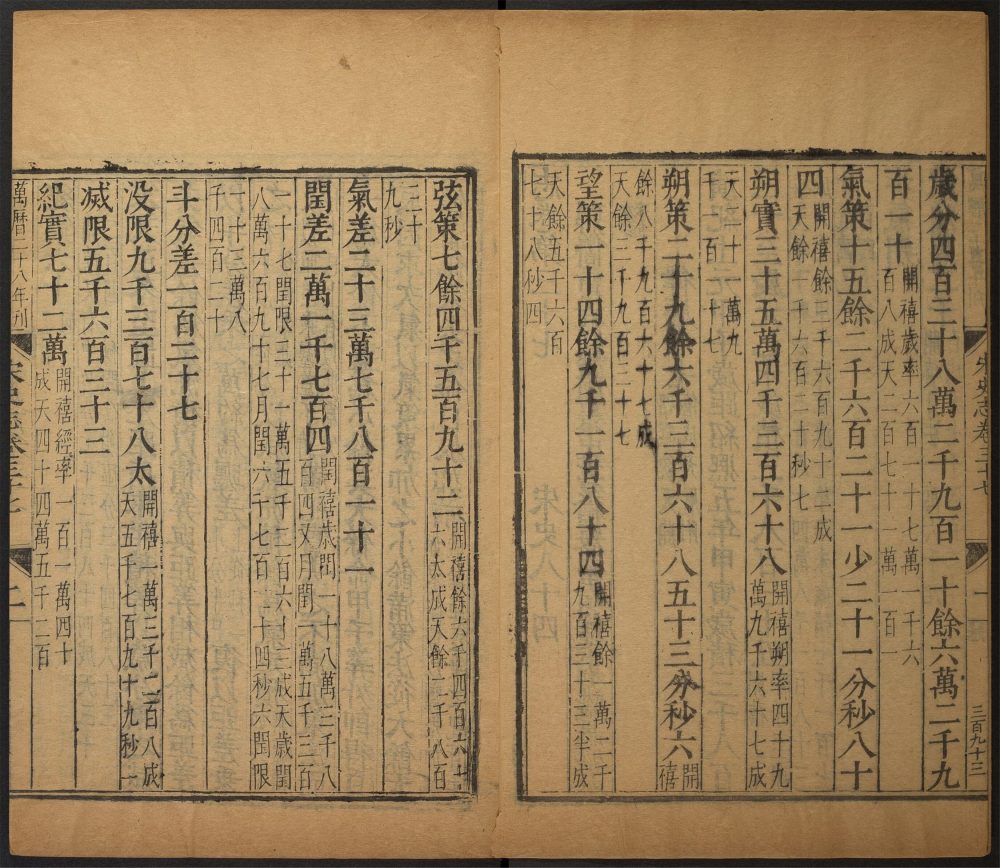 宋史志卷三十七 一 三百九十三
歲分四百三十八萬二千九百一十餘六萬二千九
百一十開禧歲率六百一十七萬一千六
百八成天二百七十一萬一百一
氣策十五餘二千六百二十一少二十一分秒八十
四開禧餘三千六百九十二成
天餘一千六百二十秒七
朔實三十五萬四千三百六十八開禧朔率四十九
萬九千六十七成
天二十一萬九
千一百一十七
朔策二十九餘六千三百六十八五十三分秒六開
禧
餘八千九百六十七成
天餘三千九百二十七
望策一十四餘九千一百八十四開禧餘一萬二千
九百三十三半成
天餘五千六百
七十八秒四
弦策七餘四千五百九十二開禧餘六千四百六十
六太成天餘二千八百
三十
九秒
氣差二十三萬七千八百一十一
閏差二萬一千七百四開禧歲閏一十八萬三千八
百四又月閏一萬五千三百
一十七閏限三十一萬五千二百六十三成天歲閏
八萬六百九十七月閏六千七百二十四秒六閏限
一十三萬八
千四百二十
斗分差一百二十七
没限九千三百七十八太開禧一萬三千二百八成
天五千七百九十九秒一
减限五千六百三十三
紀實七十二萬開禧經率一百一萬四十
成天四十四萬五千二百
萬曆二十八年刊 宋史志卷三十七 二